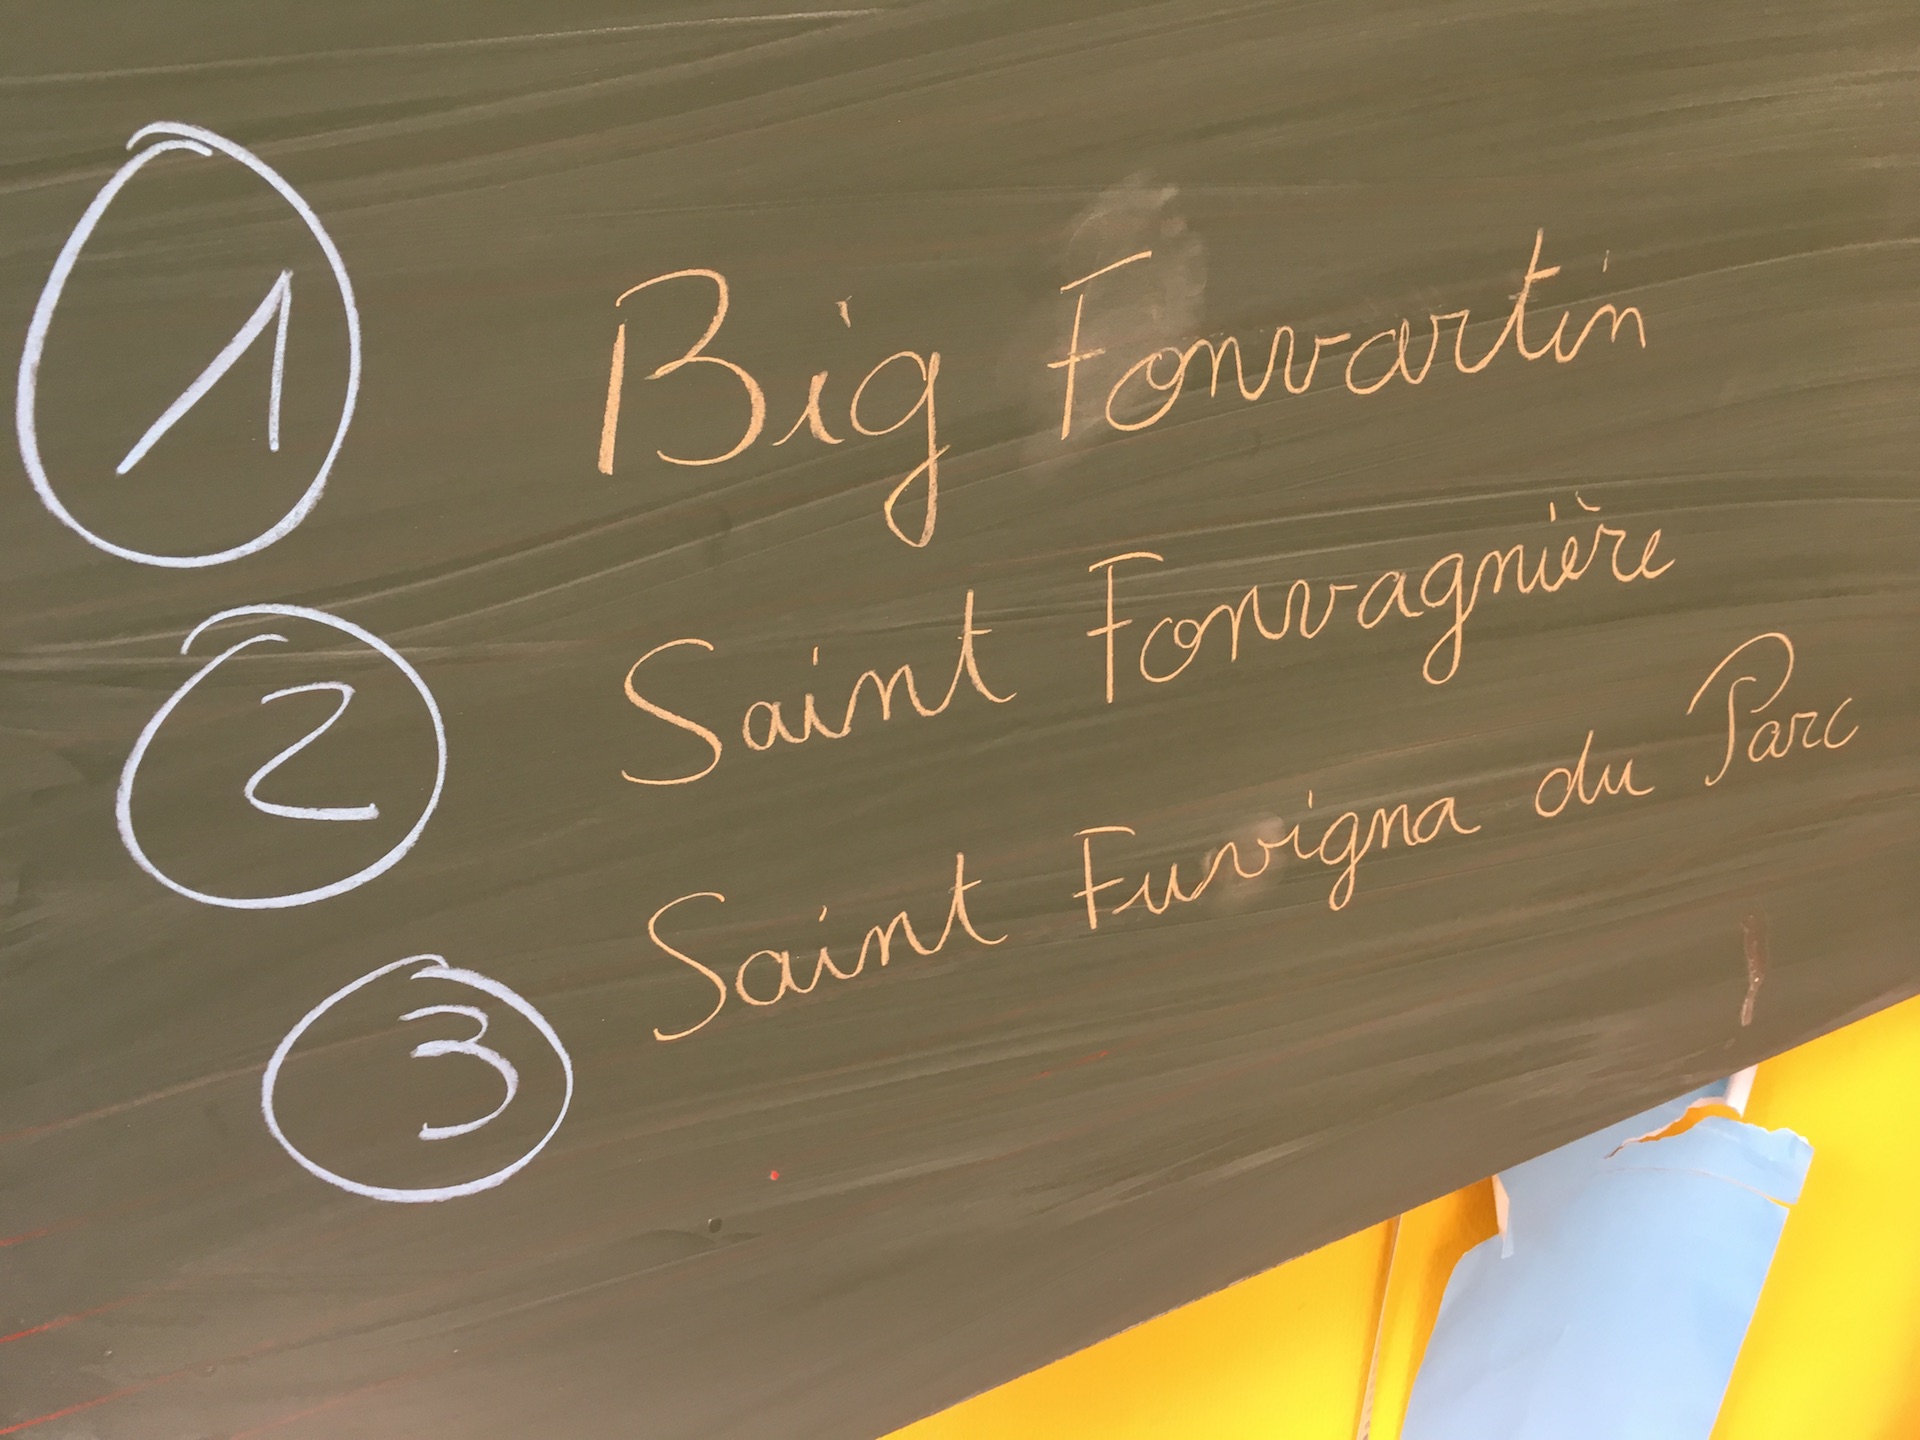 1 Big Fonvartin
2 Saint Fonvagnière
3 Saint Fuvigna du Parc